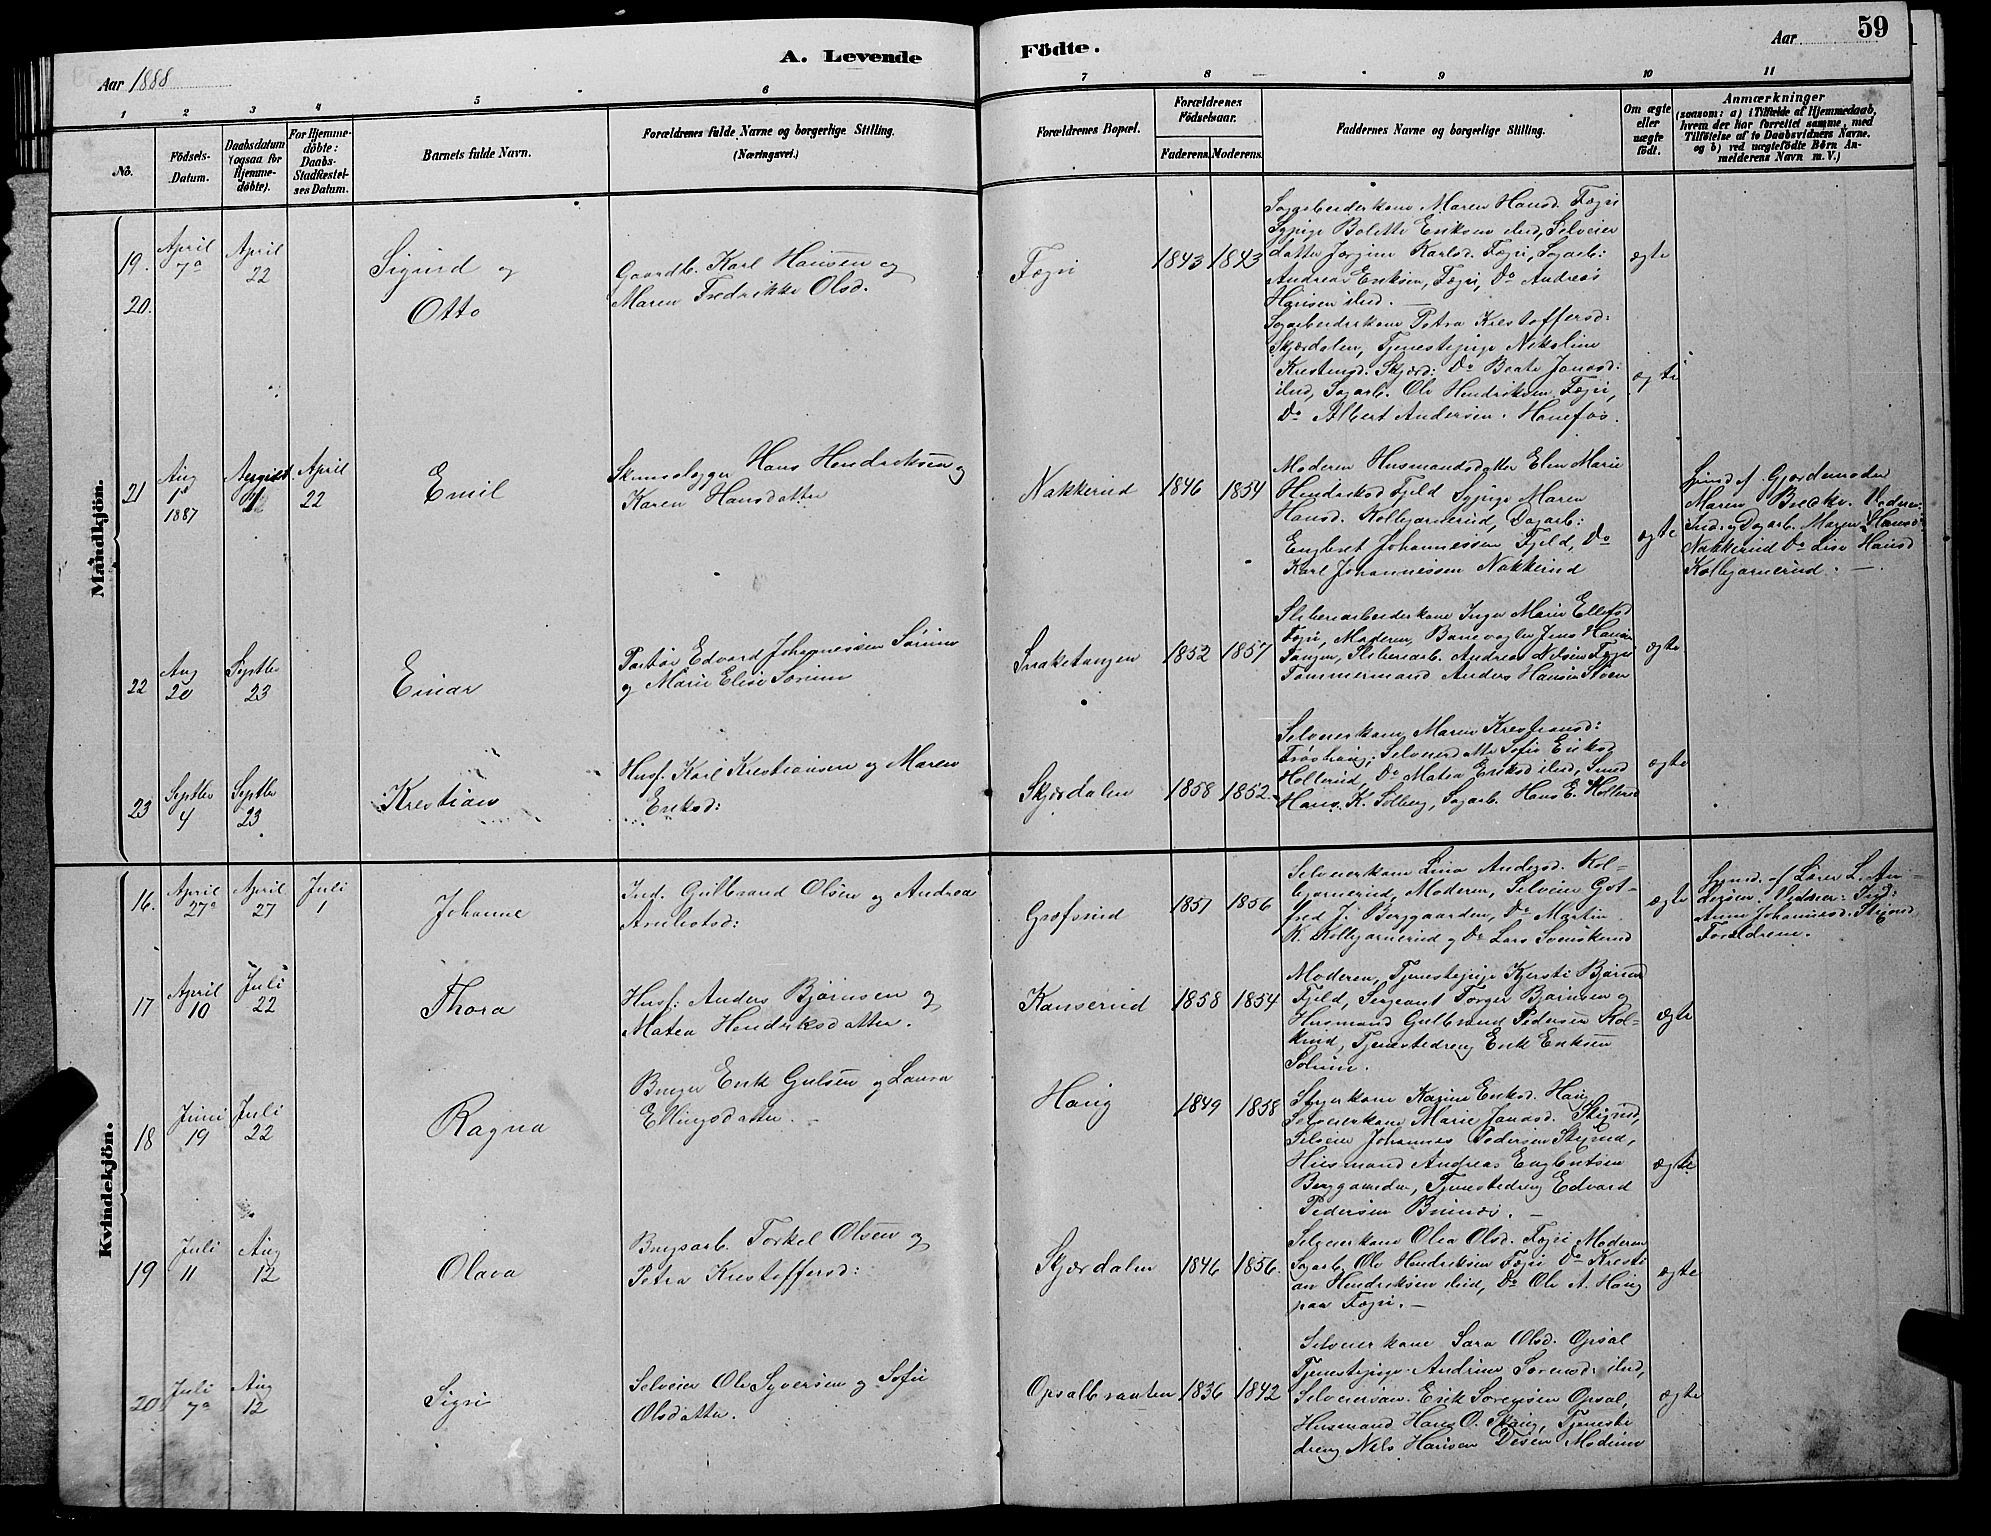 A. Levende
Födte.
Aar
59
Aar 1888
1 2 3 4 5 6 7 8 9 10 11
No.
Födsels-
Datum.
Daabsdatum
(ogsaa for
Hjemme-
döbte).
For Hjemme-
döbte:
Daabs-
Stadfæstel-
ses Datum.
Barnets fulde Navn.
Forældrenes fulde Navne og borgerlige Stilling.
(Næringsvei.)
Forældrenes Bopæl.
Forældrenes
Födselsaar.
Faderens. Moderens.
Faddernes Navne og borgerlige Stilling.
Om ægte
eller
uægte
födt.
Anmærkninger
(saasom: a) i Tilfælde af Hjemmedaab,
hvem der har forrettet samme, med
Tilföielse af to Daabsvidners Navne.
og b) ved uægtefödte Börn An-
melderens Navn m. V.)
Mandkjön.
19.
20.
April
7de
April
22
Sigurd og
Otto
Gaardb. Karl Hansen og
Maren Fredrikke Olsd.
Fægri
1843 1843
Sagarbeiderkone Maren Hansd. Fægri
Sypige Bolette Eriksen ibid, Selveier
datter Jørgine Karlsd. Fægri, Sagarb:
Andreas Eriksen, Fægri, Do Andreas
Hansen ibid. —
ægte
Sagarbeiderkone Petra Krestoffersd:
Skjærdalen, Tjenestepige Nikoline
Krestensd. Skjærd: Do Beate Jonasd:
ibid, Sagarb. Ole Hendriksen Fægri,
Do Albert Andersen. Hønefos.
ægte
21
Aug
1ste
1887
August
April
22
Emil
Hans Hendriksen og
Karen Hansdatter
Nakkerud
1846 1854
Moderen Husmandsdatter Elen Marie
Hendriksd Fjeld Sypige Maren
Hansd. Kolbjørnerud, Dagarb:
Engbret Johannessen Fjeld, Do
Karl Johannessen Nakkerud
ægte
af Gjordemoder
Maren
Dagarb. Maren Hansd
Nakkerud Do Lise Hansd
Kolbjørnerud. —
22
Aug
20
Septbr
23
Einar
Edvard Johannessen Sørum
og Marie Elise Sørum
1852 1857
Sliberiarbeiderkone Inger Marie Ellefsd
Fægri, Moderen, Banevogter Jens Hansen
Tangen, Sliberiarb. Andreas Nilsen Fægri
Tømmermand Anders Hansen Støen
ægte
23
Septbr
4
Septbr
23
Krestian
Husf. Karl Krestiansen og Maren
Eriksd:
Skjærdalen
1858 1852.
Selveierkone Maren Krestiansd:
Selveierdatter Sofie Eriksd
Hollerud, Do Matea Eriksd ibid, Smed
Hans. K. Solberg, Sagarb. Hans E. Hollerud
ægte
Kvindekjön.
16.
April
27de
April
27
Juli
1
Johanne
Ind. Gulbrand Olsen og Andrea
Græfsrud
1857 1856
Selveierkone Lina Andersd. Kol-
bjørnerud, Moderen, Selveier Got-
fred J. Berggaarden, Do Martin
K. Kolbjørnerud og Do Lars Svenskerud
ægte
af Lærer L. An-
dersen. Vidner: Ind:
Anne Johannesd. Stixrud
Forældrene.
17
April
10
Juli
22
Thora
Husf: Anders Bjørnsen og
Matea Hendriksdatter.
Kanserud
1858 1854
Moderen, Tjenestepige Kjersti Bjørnsd
Fjeld, Sergeant Torger Bjørnsen og
Husmand Gulbrand Pedersen Kol-
krud, Tjenestedreng Erik Eriksen
Solum.
ægte
18
Juni
19
Juli
22
Ragna
Bruger Erik Gulsen og Laura
Ellingsdatter. —
Haug
1849 1858
Karine Eriksd. Haug
Selveierkone Marie Jonasd. Stixrud,
Selveier Johannes Pedersen Stixrud,
Husmand Andreas Engbretsen
Berggaarden, Tjenestedreng Edvard
Pedersen —
ægte
19
Juli
11
Aug
12
Olava
Brugsarb. Torkel Olsen og
Petra Krestoffersd:
Skjærdalen
1846 1856.
Selveierkone Olea Olsd. Fægri Moderen
Sagarb. Ole Hendriksen Fægri Do Kresti
an Hendriksen ibid, Do Ole A. Haug
paa Fægri. —
ægte
20
Juli
7de
Aug
12
Sigri
Selveier Ole Syversen og Sofie
Olsdatter.
Opsalbraaten
1836 1842
Selveierkone Sara Olsd. Opsal
Tjenestepige Andrine Sørensd. ibid,
Selveiersøn. Erik Sørensen Opsal,
Husmand Hans O. Haug, Tjeneste
dreng Nils Hansen Modum
ægte